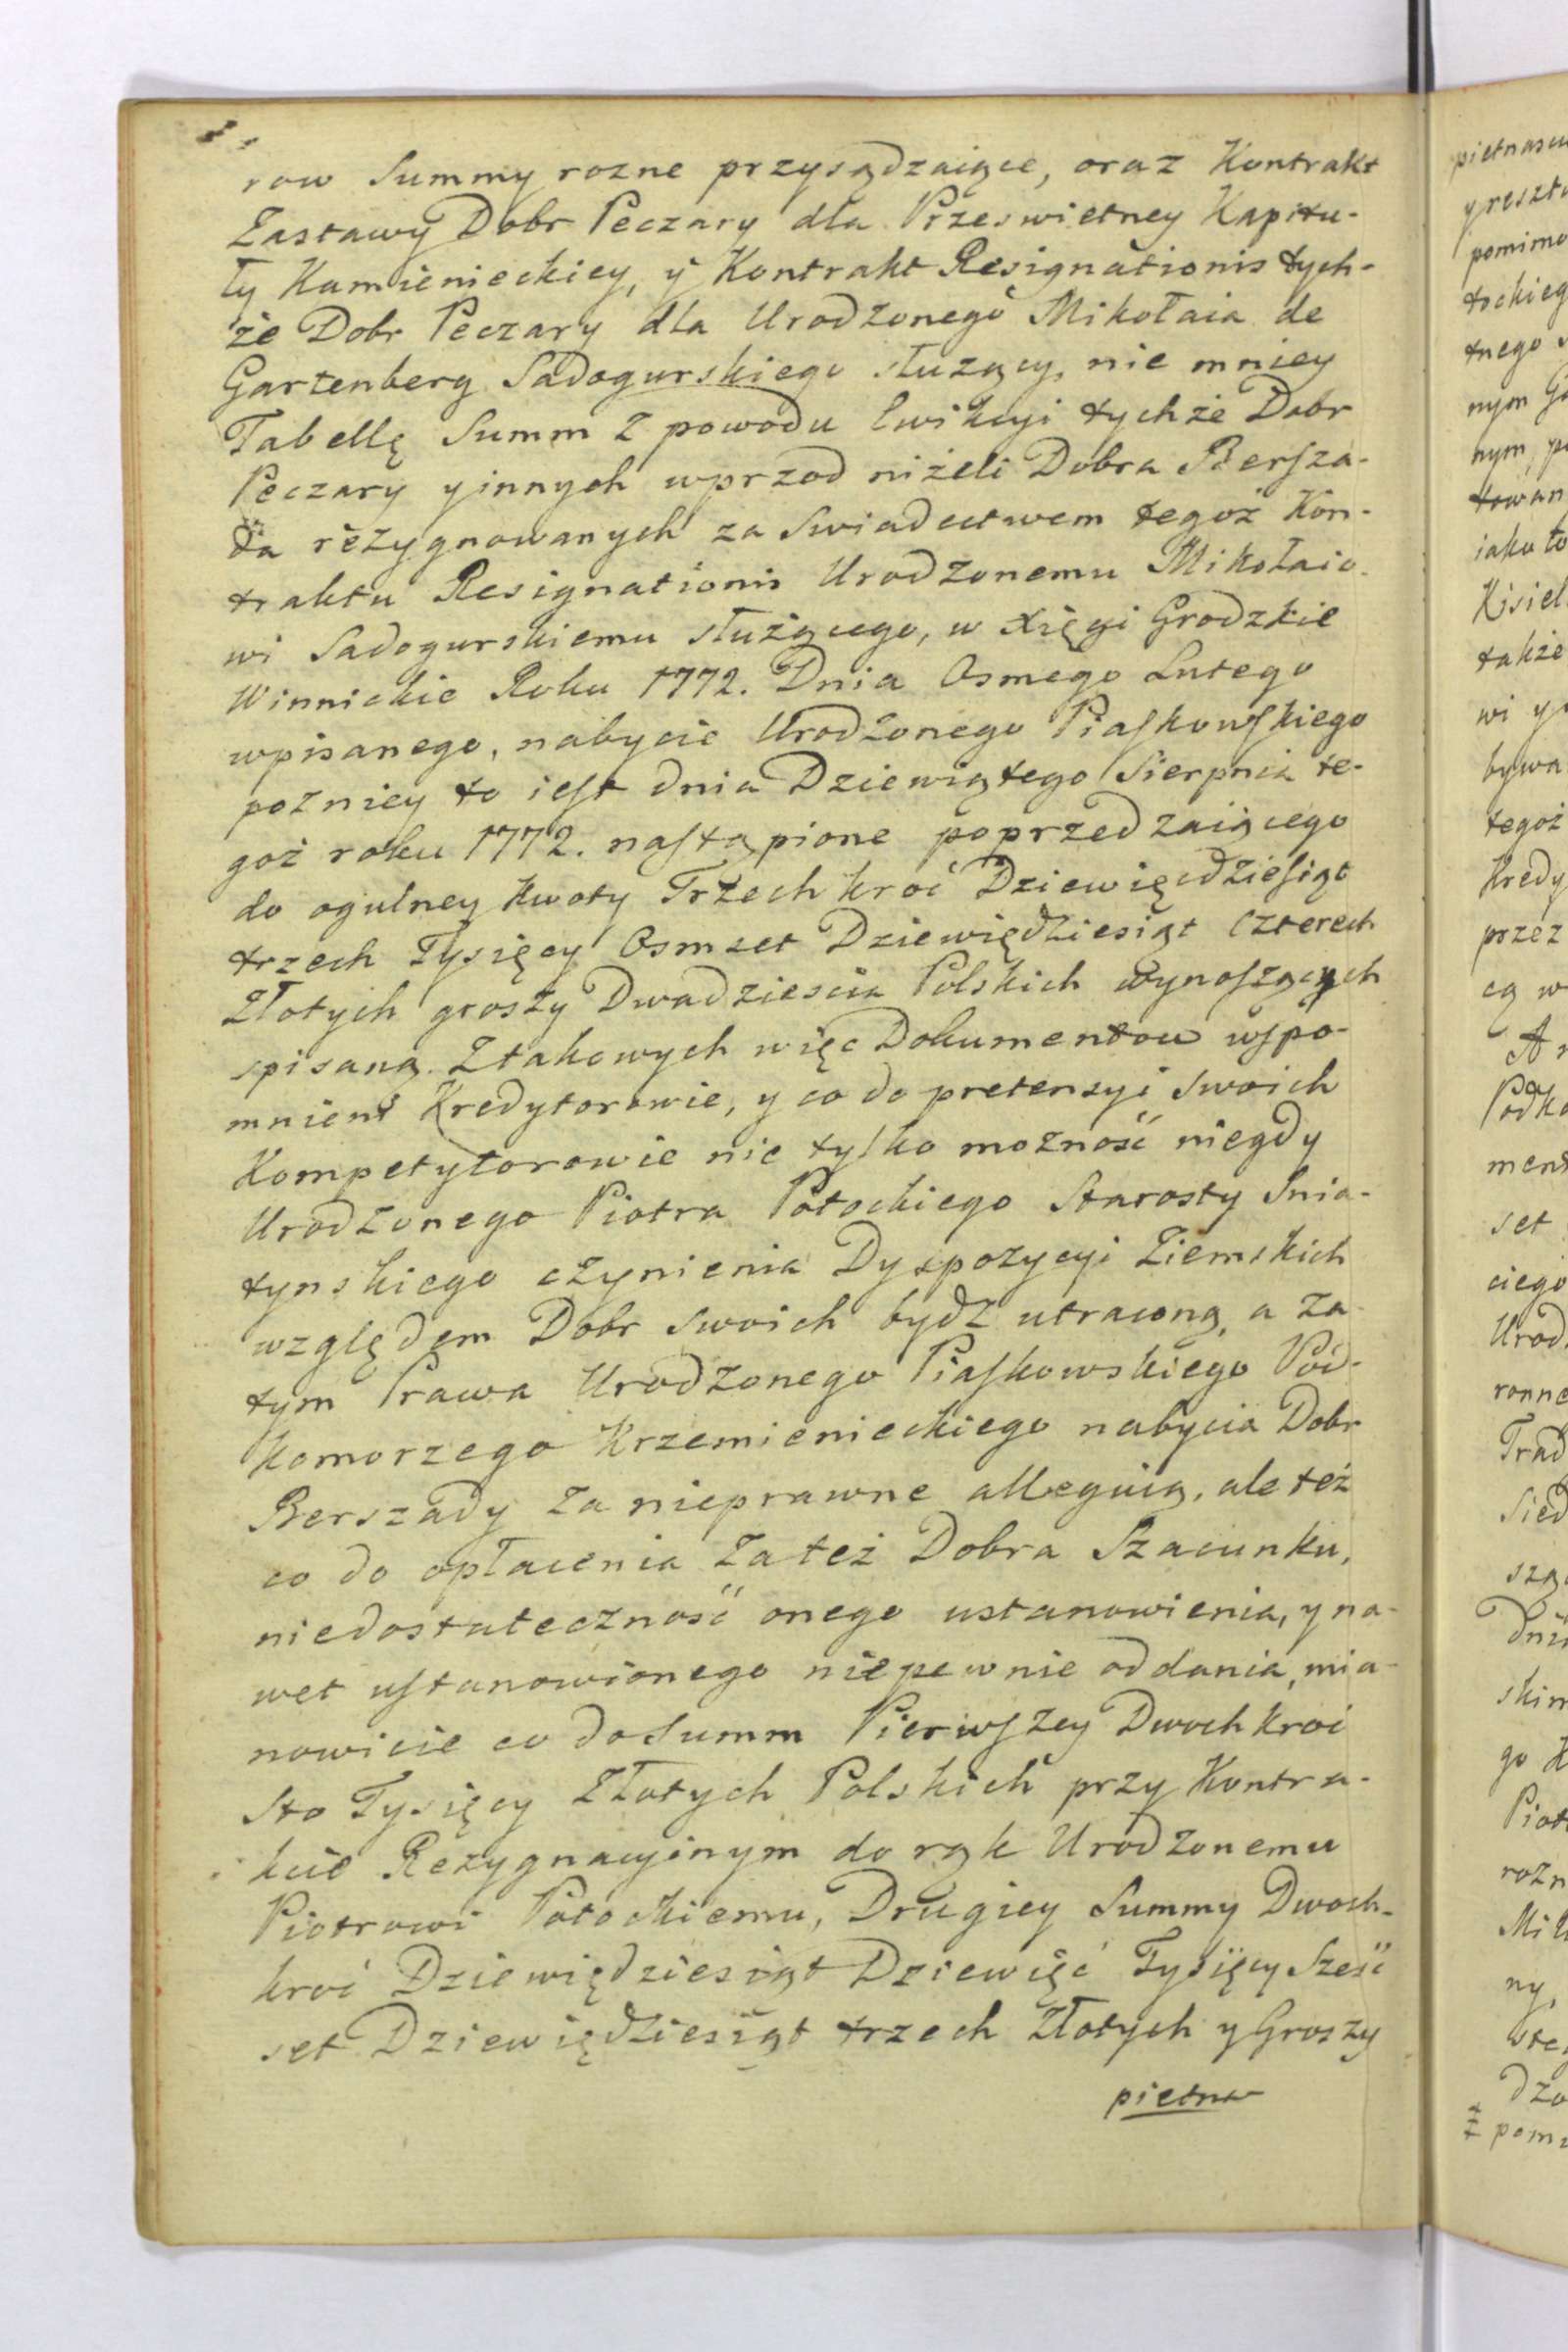 row Summy rozne przysądzaiące, oraz Kontrakt
Zastawy Dobr Peczary dla Przeswietney Kapitu-
ły Kamienieckiey, y Kontrakt Resignationis tych-
że Dobr Peczary dla Urodzonego Mikołaia de
Gartenberg Sadogurskiego służący, nie mniey
Tabellę Summ z powodu Ewikcyi tychże Dobr
Peczary y innych wprzod niżeli Dobra Berſza-
da rezygnowanych za Swiadectwem tegoż Kon-
traktu Resignationis Urodzonemu Mikołaio-
wi Sadogurskiemu służącego, w Xięgi Grodzkie
Winnickie Roku 1772. Dnia Osmego Lutego
wpisanego, nabycie Urodzonego Piaſkowſkiego
pozniey to ieſt dnia Dziewiątego Sierpnia te-
goż roku 1772. naſtąpione poprzedzaiącego
do ogulney kwoty Trzech kroć Dziewięćdzieſiąt
trzech Tysięcy Osmset Dziewiędziesiąt Czterech
Złotych groszy Dwadziescia Polskich wynoſzących
spisaną. Z takowych więc Dokumentow wſpo-
mnieni Kredytorowie, y co do pretensyi swoich
Kompetytorowie nie tylko możność niegdy
Urodzonego Piotra Potockiego Starosty Snia-
tynskiego czynienia Dyspozycyi Ziemskich
względem Dobr swoich bydź utraconą, a za-
tym Prawa Urodzonego Piaſkowskiego Pod-
komorzego Krzemienieckiego nabycia Dobr
Berszady za nieprawne alleguią, ale też
co do opłacenia za też Dobra Szacunku,
niedostateczność onego ustanowienia, y na-
wet uſtanowionego niepewnie oddania, mia-
nowicie co do Summ Pierwſzey Dwoch kroć
Sto Tysięcy Złotych Polskich przy Kontra-
kcie Rezygnacyinym do rąk Urodzonemu
Piotrowi Potockiemu, Drugiey Summy Dwoch-
kroć Dziewiędziesiąt Dziewięć Tysięcy Sześć
set Dziewiędziesiąt trzech Złotych y Groszy
pietna
pietnasu
y reszt
pomimo
tockieg
tnego
nym
nym,
towan
iako to
Kisiel
także
wi
bywa
tegoż
Kredy
przez
cą w
Podko
men
set
ciego
Urod
ronne
Trad
Sied
skim
go
Piot
rożn
ny,
pom